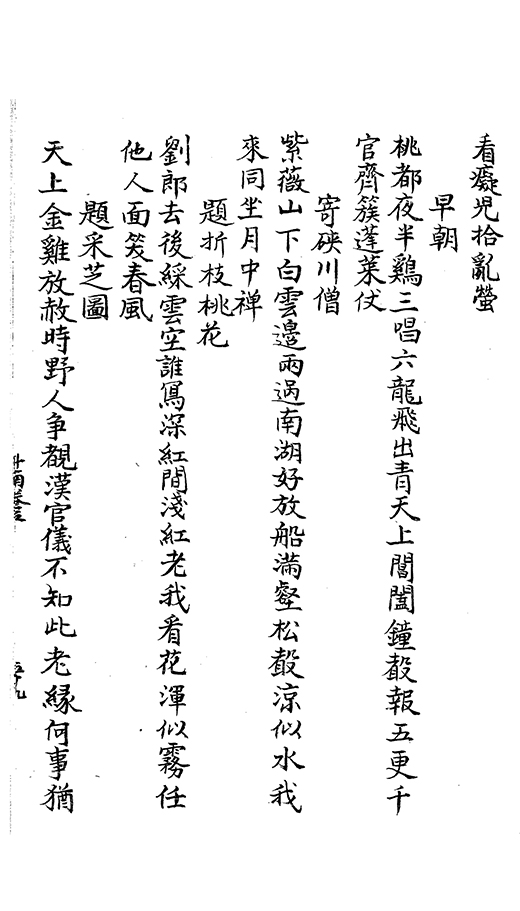 看癡児拾亂螢
早朝
桃都夜半鷄三唱六龍飛出青天上閶闔鐘聲報五更千
官齊簇蓬萊仗
寄硤川僧
紫薇山下白雲邉兩過南湖好放船滿壑松聲涼似水我
來同坐月中禅
題折枝桃花
劉郎去後綵雲空誰寫深紅間淺紅老我看花渾似霧任
他人面笑春風
題采芝圖
天上金雞放赦時野人争覩漢官儀不知此老縁何事猶